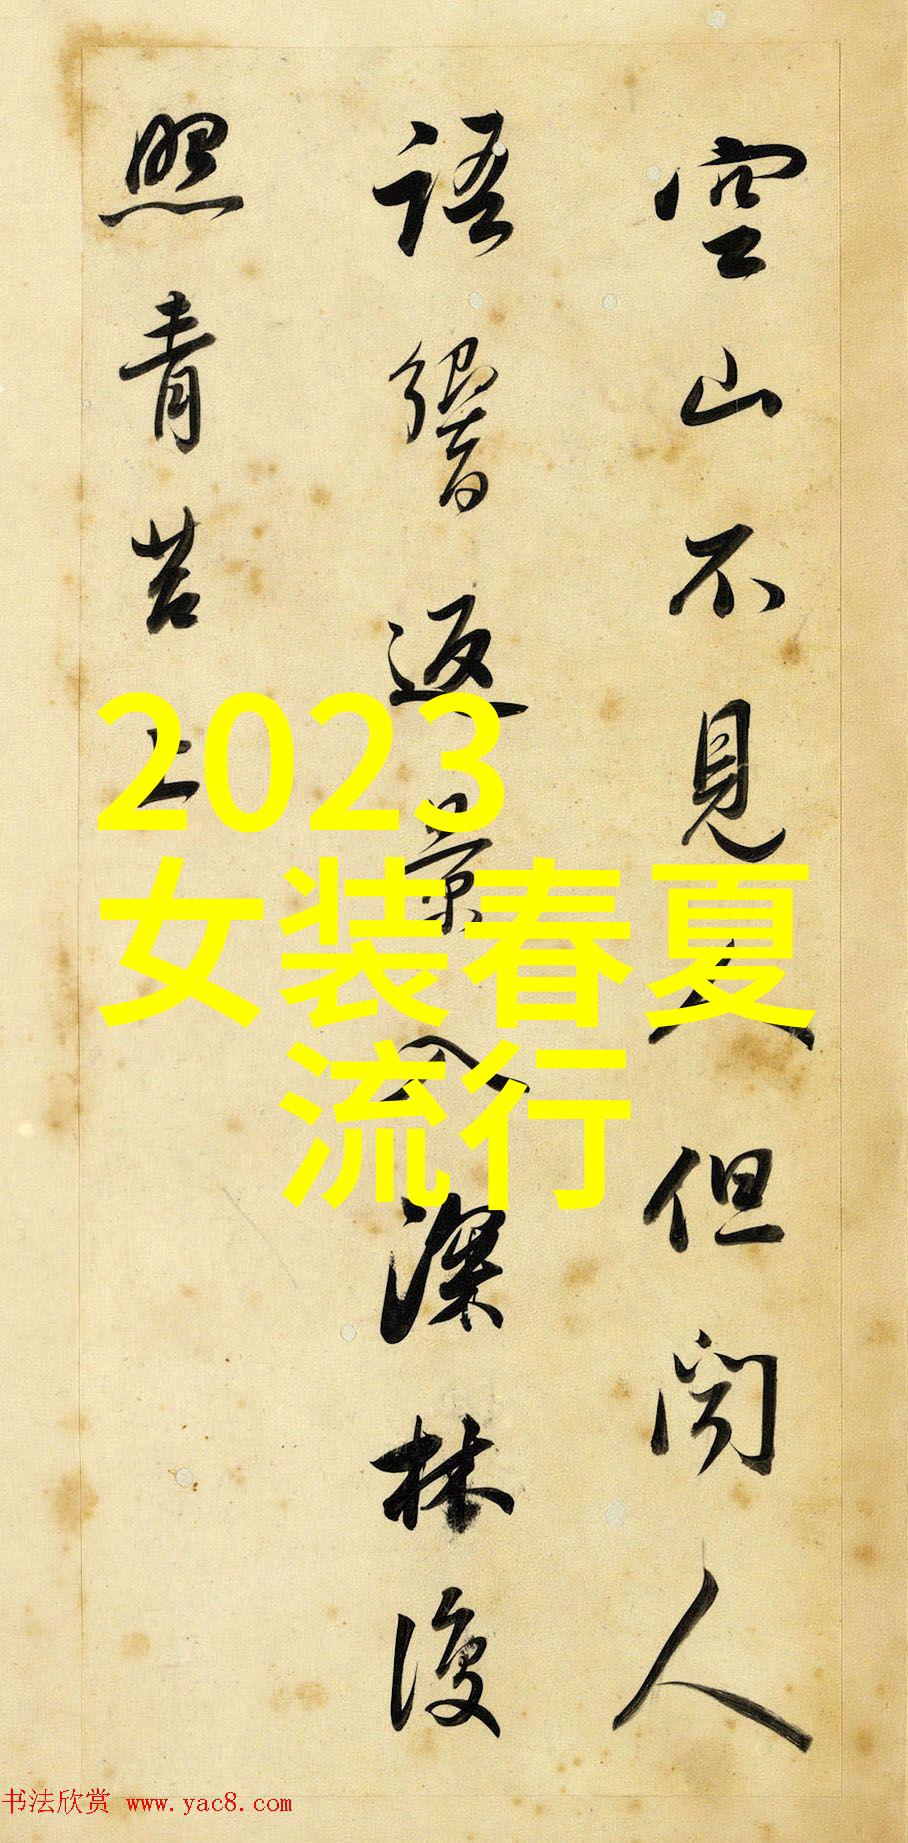 空山不見人但聞人
語響返景入深林復
照青苔上
2023
女装春夏
流行
书法欣赏 www.yac8.com